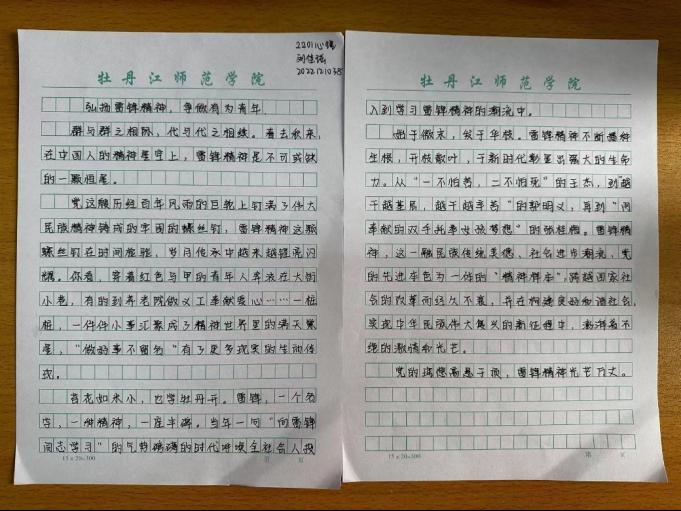 2201心辅
2022121038
牡丹江师范学院
弘扬雷锋精神，争做有为青年
群与群之相随，代与代之相续。春去秋来，
在中国人的精神星空上，雷锋精神是不可或缺
的一颗恒星。
党这艘历经百年风雨的巨轮上钉满了伟大
民族精神铸成的牢固的螺丝钉，雷锋精神这颗
螺丝钉在时间检验，岁月传承中越来越锃亮闪
耀。你看，穿着红色马甲的青年人奔波在大街
小巷，有的到养老院做义工奉献爱心……一桩
桩，一件件小事汇聚成了精神世界里的满天繁
星，“做好事不留名”有了更多现实的生动体
现。
苔花如米小，也学牡丹开。雷锋，一个名
字，一种精神，一座丰碑。当年一句“向雷锋
同志学习”的气势磅礴的时代呼唤全社会人投
15×20=300
第 页
牡丹江师范学院
入到学习雷锋精神的潮流中。
始于微末，发于华枝。雷锋精神不断播种
生根，开枝散叶，于新时代彰显出强大的生命
力。从“一不怕苦，二不怕死”的王杰，到“越
干越基层，越干越辛苦”的郭明义，再到“用
奉献的双手托举女孩梦想”的张桂梅。雷锋精
神，这一融民族传统美德、社会进步潮流，党
的先进本色为一体的“精神锚本”，跨越国家社
会的改革而经久不衰，并在构建美好和谐社会，
实现中华民族伟大复兴的新征程中，澎湃着不
绝的激情和光芒。
党的瑰德高悬于顶，雷锋精神光芒万丈。
15×20=300
第 页